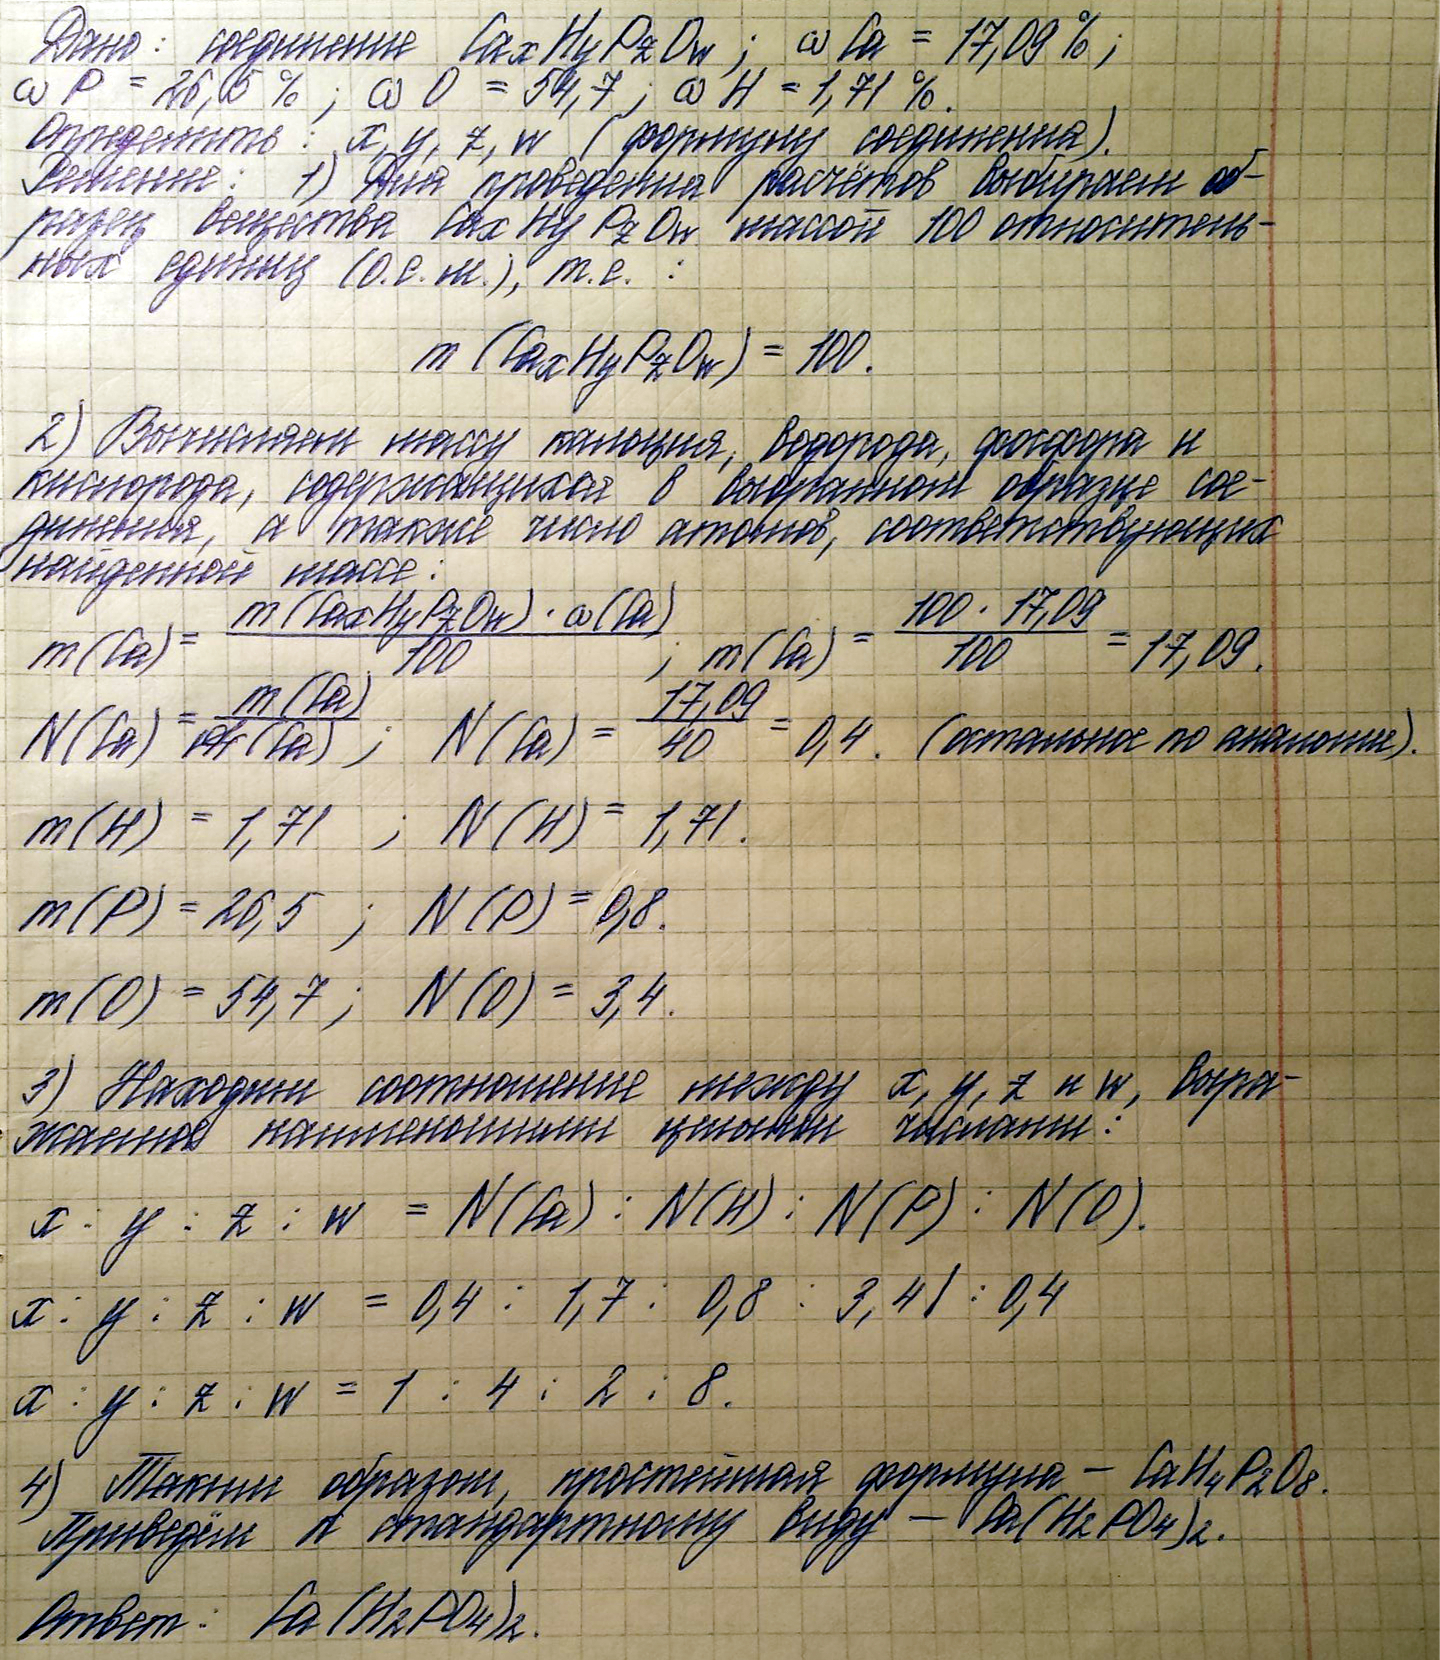 Дано: соединение CaxHyPzOw; ω Ca = 17,09%;
ω P = 26,5%; ω O = 54,7; ω H = 1,71%.
Определить: x, y, z, w (формулу соединения).
Решение: 1) Для проведения расчётов выбираем об-
разец вещества CaxHyPzOw массой 100 относитель-
ных единиц (о.е.м.), т.е. :
m (CaxHyPzOw) = 100.
2) Вычисляем массу кальция, водорода, фосфора и
кислорода, содержащихся в выбранном образце сое-
динения, а также число атомов, соответствующих
найденной массе:
m(Ca) = m(CaxHyPzOw) · ω(Ca) / 100 ; m(Ca) = 100 · 17,09 / 100 = 17,09.
N(Ca) = m(Ca) / Ar(Ca) ; N(Ca) = 17,09 / 40 = 0,4. (остальное по аналогии).
m(H) = 1,71 ; N(H) = 1,71.
m(P) = 26,5 ; N(P) = 0,8.
m(O) = 54,7 ; N(O) = 3,4.
3) Находим соотношение между x, y, z и w, выра-
жаемое наименьшими целыми числами:
x : y : z : w = N(Ca) : N(H) : N(P) : N(O).
x : y : z : w = 0,4 : 1,7 : 0,8 : 3,4 | : 0,4
x : y : z : w = 1 : 4 : 2 : 8.
4) Таким образом, простейшая формула – CaH4P2O8.
Приведём к стандартному виду – Ca(H2PO4)2.
Ответ: Ca(H2PO4)2.